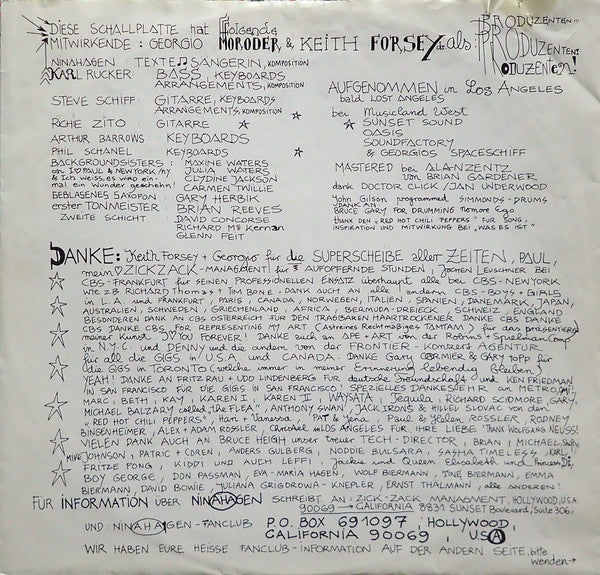 DIESE SCHALLPLATTE hat folgende
MITWIRKENDE: GEORGIO MORODER, & KEITH FORSEY als PRODUZENTEN!!!
PRODUZENTEN!
ODUZENTEN!
NINAHAGEN: TEXTE SÄNGERIN, KOMPOSITION
KARL RUCKER BASS, KEYBOARDS
ARRANGEMENTS, KOMPOSITION
STEVE SCHIFF: GITARRE, KEYBOARDS
ARRANGEMENTS, KOMPOSITION
RICHIE ZITO: GITARRE
ARTHUR BARROWS: KEYBOARDS
PHIL SCHANEL KEYBOARDS
BACKGROUNDSISTERS: MAXINE WATERS
on I ♡ PAUL & NEW YORK/NY JULIA WATERS
& Ich Weiss, es wird ein- CLYDINE JACKSON
mal ein Wunder geschehn! CARMEN TWILLIE
BEBLASENES SAXOFON: GARY HERBIK
erster TONMEISTER: BRIAN REEVES
ZWEITE SCHICHT: DAVID CONCORSE
RICHARD MS Kernan
GLENN FEIT
AUFGENOMMEN in LOS ANGELES
bald LOST ANGELES
bei Musicland West
SUNSET SOUND
OASIS
SOUNDFACTORY
& GEORGIOS SPACESCHIFF
MASTERED bei ALAN ZENTZ
von BRIAN GARDENER
dank DOCTOR CLICK / JAN UNDERWOOD
John Gilson programmed SIMMONDS-DRUMS
DANK AN
BRUCE GARY FOR DRUMMING Nomore Ego
THANK DEN „RED HOT CHILI PEPPERS" FÜR SONG,
INSPIRATION UND MITWIRKUNG BEI „WAS ES IST"
DANKE: Keith FORSEY + Georgio für die SUPERSCHEIBE aller ZEITEN, PAUL,
mein ♡ ZICKZACK-MANAGMENT für 3 AUFOPFERNDE STUNDEN, JOCHEN LEUSCHNER BEI
CBS-FRANKFURT FÜR SEINEN PROFESSIONELLEN EINSATZ überhaupt alle bei CBS-NEW YORK
wie z.B. RICHARD Thomas + TIM BONE. DANK AUCH AN alle anderen CBS-BOYS + GIRLS
in L.A und FRANKFURT, PARIS, CANADA, NORWEGEN, ITALIEN, SPANIEN, DANEMARK, JAPAN,
AUSTRALIEN, SCHWEDEN, GRIECHENLAND, AFRICA, BERMUDA-DREIECK, SCHWEIZ, ENGLAND
BESONDEREN DANK AN CBS ÖSTERREICH FÜR DEN TRAGBAREN HAARTROCKENER DANKE CBS DANKE
CBS DANKE CBS FOR REPRESENTING MY ART (Astreines Rechtmäßiges TAMTAM) für das präsentieren
meiner Kunst I ♡ YOU FOREVER! DANKE auch an APE + ART von der Robins + Spielman Comp.
in N.Y.C und DENNY und die andern von der FRONTIER - KONZERT AGENTUR
für all die GIGS in U.S.A und CANADA. DANKE Gary CORMIER & GARY TOPP für
die GIGS in TORONTO (welche immer in meiner Erinnerung lebendig bleiben)
YEAH! DANKE AN FRITZ RAU + UDO LINDENBERG für deutsche Freundschaft und KEN FRIEDMAN
IN SAN FRANCISCO FÜR DIE GIGS IN SAN FRANCISCO! SPEZIELLES DANKESEHR an METRO,
MARC, BETH, KAY, KAREN I, KAREN II, WAYSATA, Tequila, RICHARD SCIDMORE, GARY,
MICHAEL BALZARY called „THE FLEA", ANTHONY SWAN, JACK IRONS & HILLEL SLOVAC von den
„RED HOT CHILI PEPPERS", Hari + Vanessa, PAT & Yana, Paul & Helen ROSSLER, RODNEY
BINGENHEIMER, ALEX + ADAM ROSSLER, Christoph in LOS ANGELES FÜR IHRE LIEBE! THANK WOLFGANG NEUSS!
VIELEN DANK AUCH AN BRUCE HEIGH unser treuer TECH-DIRECTOR, BRIAN, MICHAEL
MIKE JOHNSON, PATRIC + COREN, ANDERS GULBERG, NODDIE BULSARA, SASHA TIMELESS, KARL,
FRITZE PONG, KIDDI UND AUCH LEFFI, Jackie und Queen Elisabeth und Princess Di,
BOY GEORGE, DON PASSMAN, EVA-MARIA HAGEN, WOLF BIERMANN, TINE BIERMANN, EMMA
BIERMANN, DAVID BOWIE, YULIANA GRIGOROWA-KNEPLER, ERNST THALMANN, alle ANDEREN!
FÜR INFORMATION ÜBER NINAHAGEN SCHREIBT AN: ZICK-ZACK MANAGMENT, HOLLYWOOD, U.S.A.
90069 → CALIFORNIA 8831 SUNSET Boulevard, Suite 306;
UND: NINAHAGEN-FANCLUB P.O. BOX 691097, HOLLYWOOD,
CALIFORNIA 90069, USA
WIR HABEN EURE HEISSE FANCLUB-INFORMATION AUF DER ANDERN SEITE. bitte
wenden→